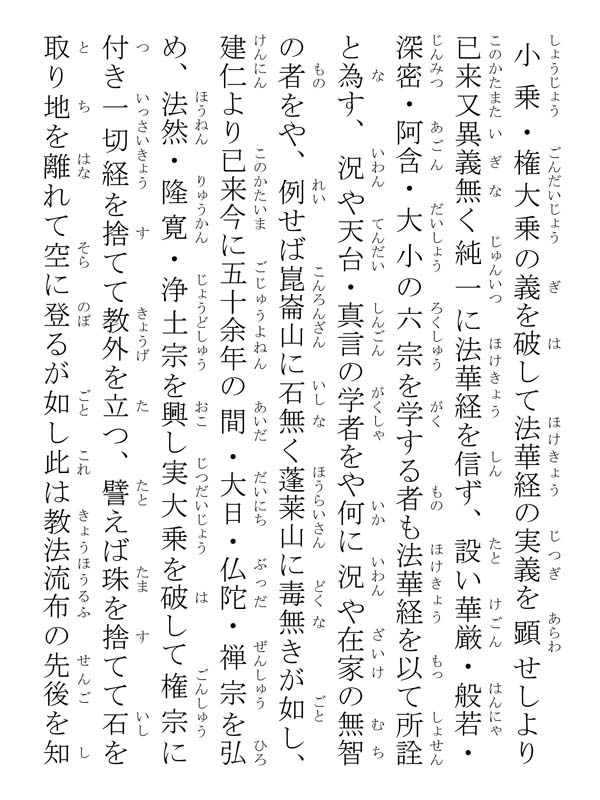 小乗・権大乗の義を破して法華経の実義を顕せしより
已来又異義無く純一に法華経を信ず、設い華厳・般若・
深密・阿含・大小の六宗を学する者も法華経を以て所詮
と為す、況や天台・真言の学者をや何に況や在家の無智
の者をや、例せば崑崙山に石無く蓬莱山に毒無きが如し、
建仁より已来今に五十余年の間・大日・仏陀・禅宗を弘
め、法然・隆寛・浄土宗を興し実大乗を破して権宗に
付き一切経を捨てて教外を立つ、譬えば珠を捨てて石を
取り地を離れて空に登るが如し此は教法流布の先後を知